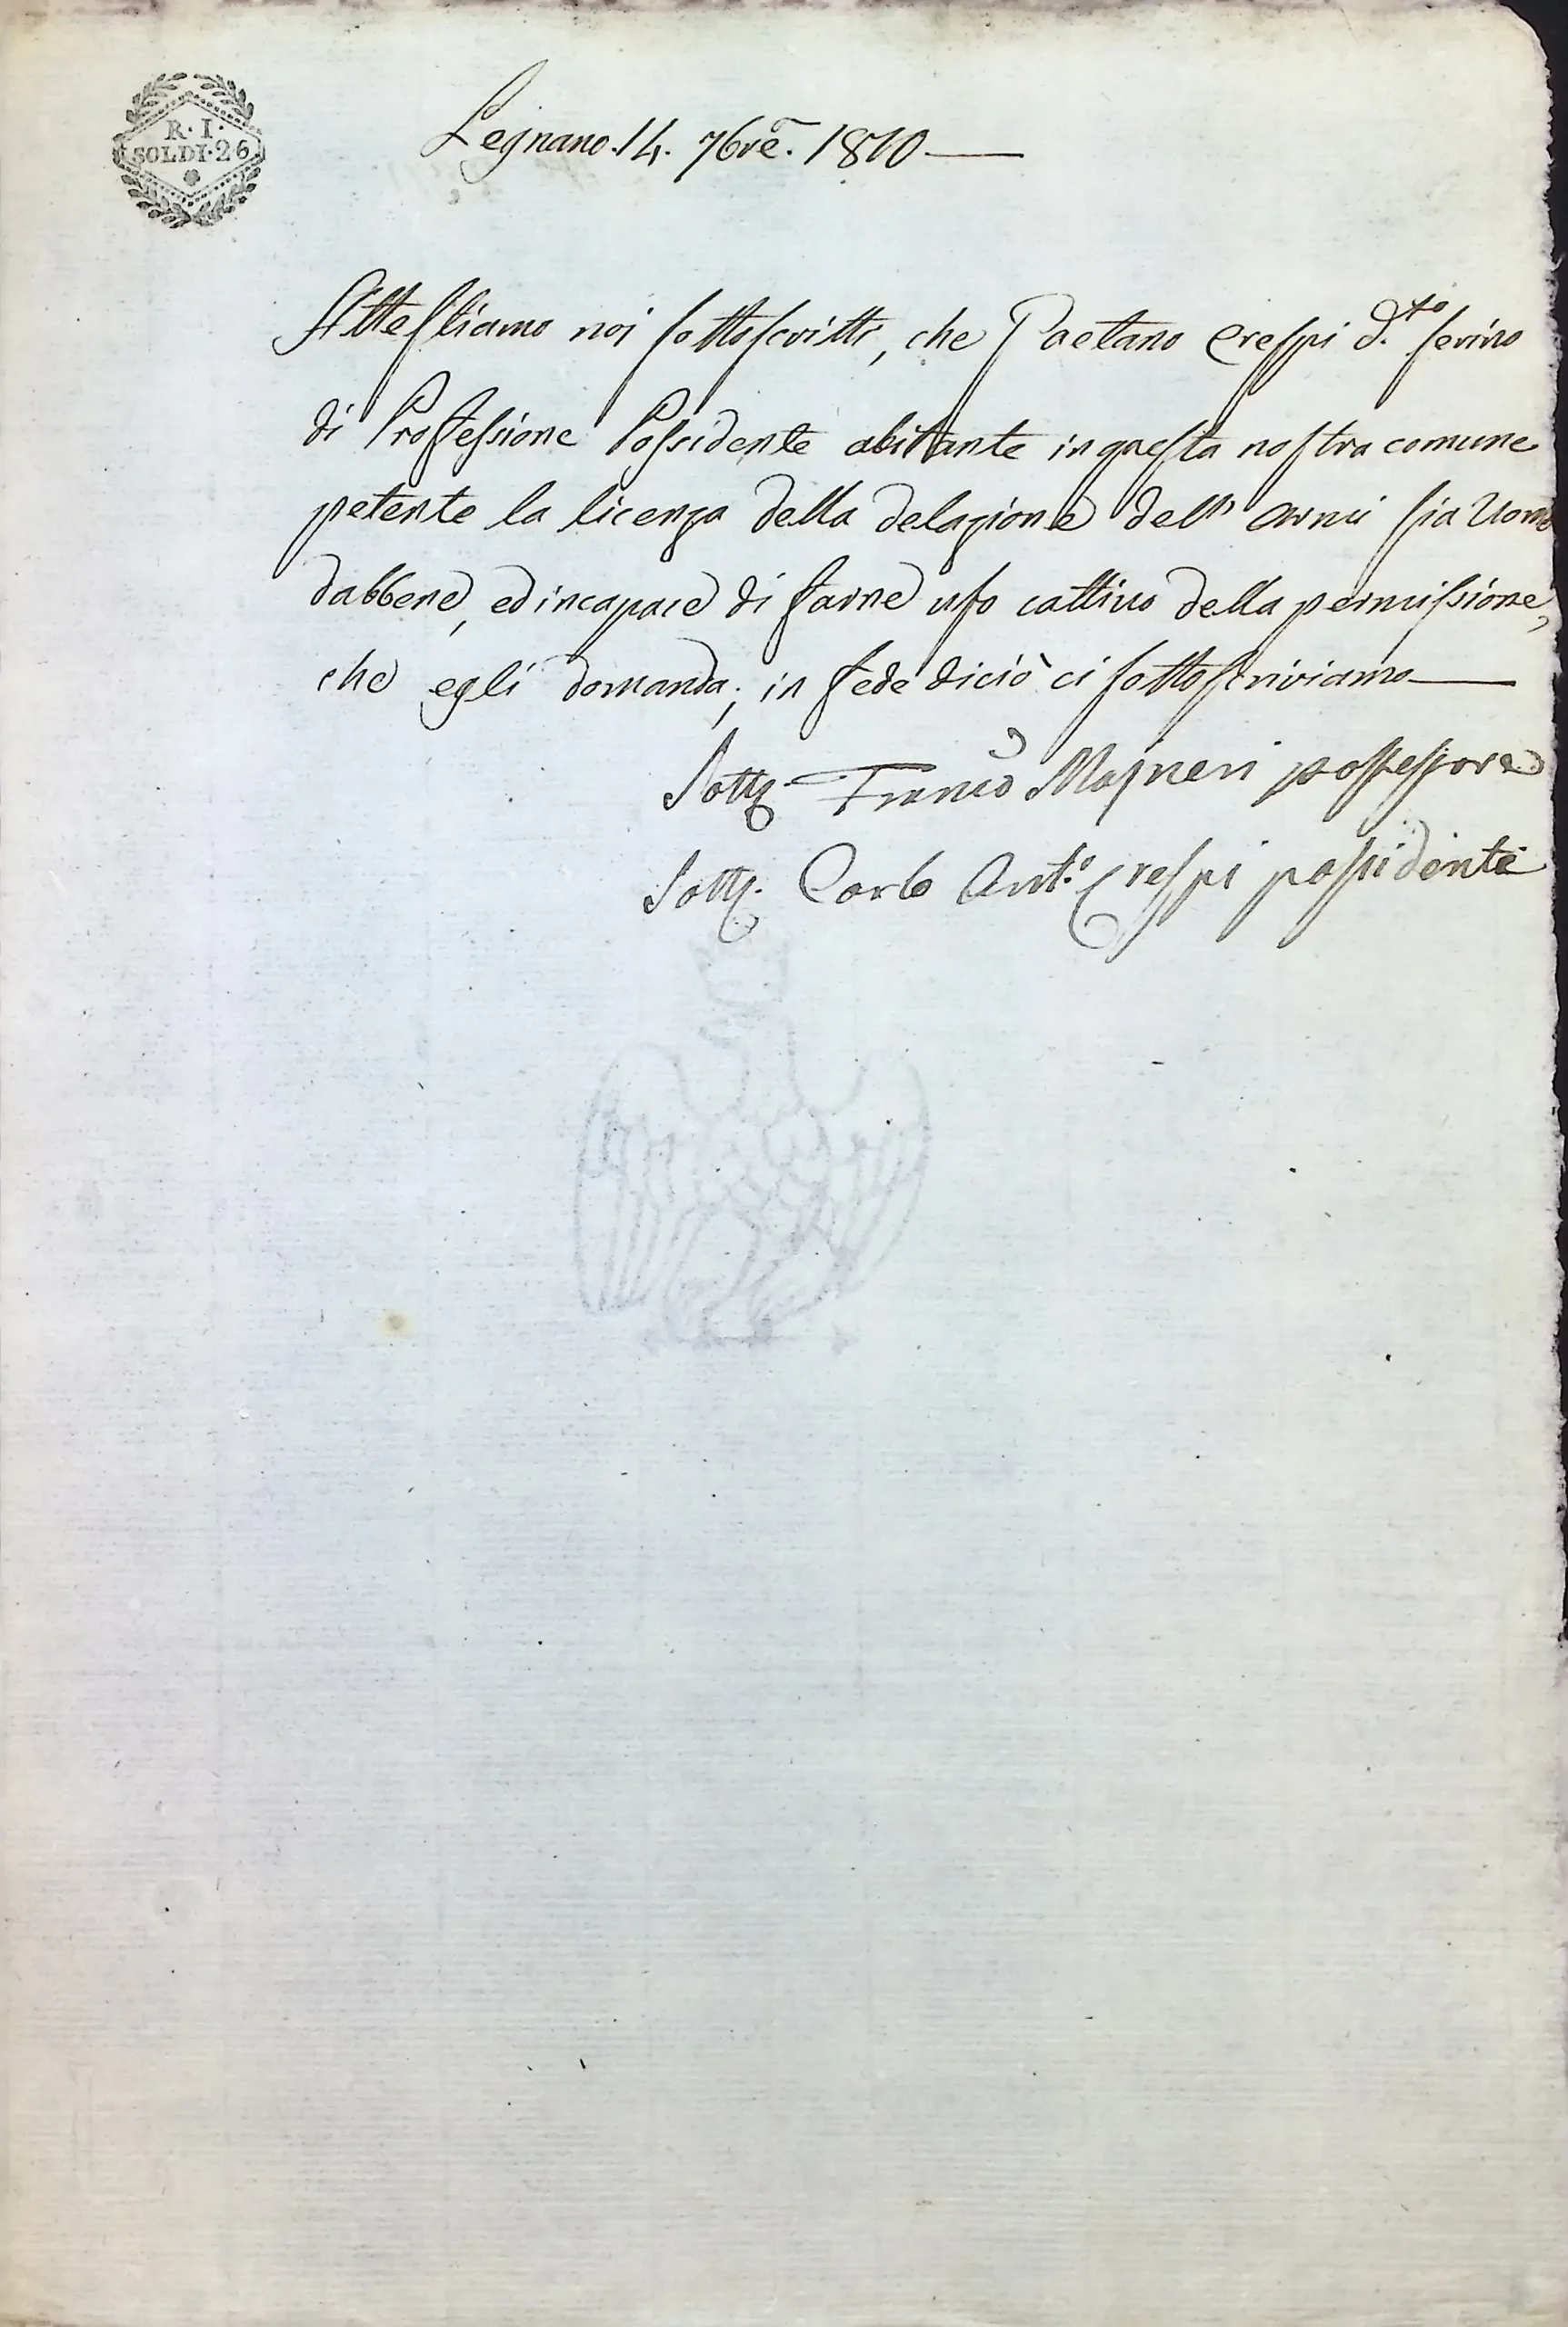 R. I.
SOLDI. 26
Legnano. 14. 7bre. 1810
Attestiamo noi sottoscritti, che Gaetano Crespi d.to
di Professione Possidente abitante in questa nostra comune
petente la licenza della delazione dell' armi sia Uomo
dabbene, ed incapace di farne uso cattivo della permissione,
che egli domanda; in fede di ciò ci sottoscriviamo
Sott. Franco possessore
Sott. Carlo Ant.o Crespi possidente